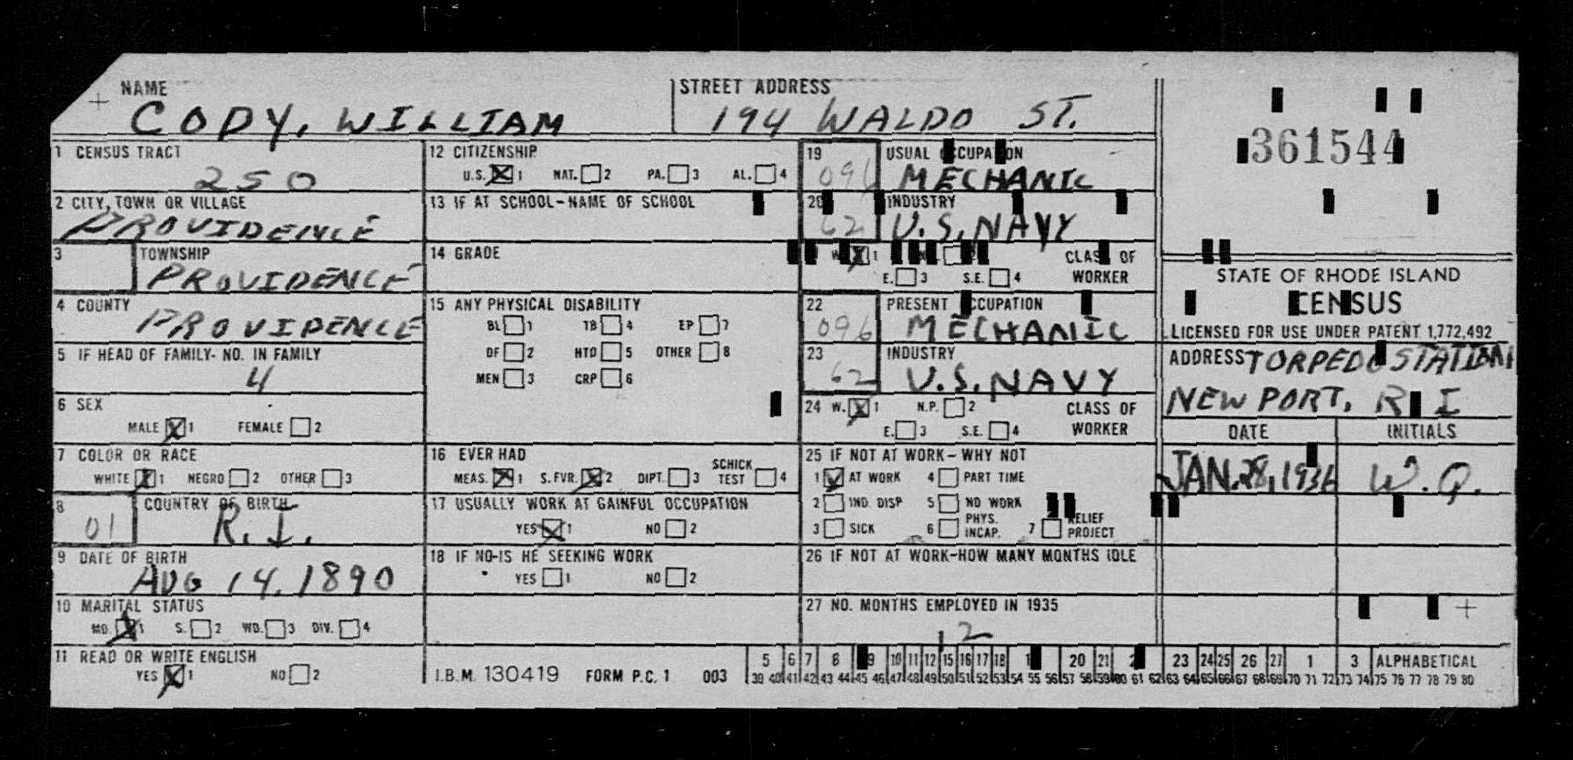 NAME
CODY, WILLIAM
STREET ADDRESS
194 WALDO ST.
361544
1 CENSUS TRACT
250
2 CITY, TOWN OR VILLAGE
PROVIDENCE
3 TOWNSHIP
PROVIDENCE
4 COUNTY
PROVIDENCE
5 IF HEAD OF FAMILY- NO. IN FAMILY
4
6 SEX
MALE X 1 FEMALE 2
7 COLOR OR RACE
WHITE X 1 NEGRO 2 OTHER 3
8 COUNTRY OF BIRTH
01 R.I.
9 DATE OF BIRTH
AUG 14, 1890
10 MARITAL STATUS
MD. X 1 S. 2 WD. 3 DIV. 4
11 READ OR WRITE ENGLISH
YES X 1 NO 2
12 CITIZENSHIP
U.S. X 1 NAT. 2 PA. 3 AL. 4
13 IF AT SCHOOL-NAME OF SCHOOL
14 GRADE
15 ANY PHYSICAL DISABILITY
BL 1 TB 4 EP 7
DF 2 HTD 5 OTHER 8
MEN 3 CRP 6
16 EVER HAD
MEAS. X 1 S.FVR. X 2 DIPT. 3 SCHICK TEST 4
17 USUALLY WORK AT GAINFUL OCCUPATION
YES X 1 NO 2
18 IF NO-IS HE SEEKING WORK
YES 1 NO 2
I.B.M. 130419 FORM P.C. 1 003
19 USUAL OCCUPATION
096 MECHANIC
20 INDUSTRY
62 U.S. NAVY
W. X 1 CLASS OF
E. 3 S.E. 4 WORKER
22 PRESENT OCCUPATION
096 MECHANIC
23 INDUSTRY
62 U.S. NAVY
24 W. X 1 N.P. 2 CLASS OF
E. 3 S.E. 4 WORKER
25 IF NOT AT WORK-WHY NOT
1 AT WORK 4 PART TIME
2 IND. DISP 5 NO WORK
3 SICK 6 PHYS. INCAP. 7 RELIEF PROJECT
26 IF NOT AT WORK-HOW MANY MONTHS IDLE
27 NO. MONTHS EMPLOYED IN 1935
12
5 6 7 8 9 10 11 12 15 16 17 18 20 21 23 24 25 26 27 1 3 ALPHABETICAL
39 40 41 42 43 44 45 46 47 48 49 50 51 52 53 54 55 56 57 58 59 60 61 62 63 64 65 66 67 68 69 70 71 72 73 74 75 76 77 78 79 80
STATE OF RHODE ISLAND
CENSUS
LICENSED FOR USE UNDER PATENT 1,772,492
ADDRESS TORPEDO STATION
NEWPORT, R I
DATE INITIALS
JAN. 28, 1936 W.Q.